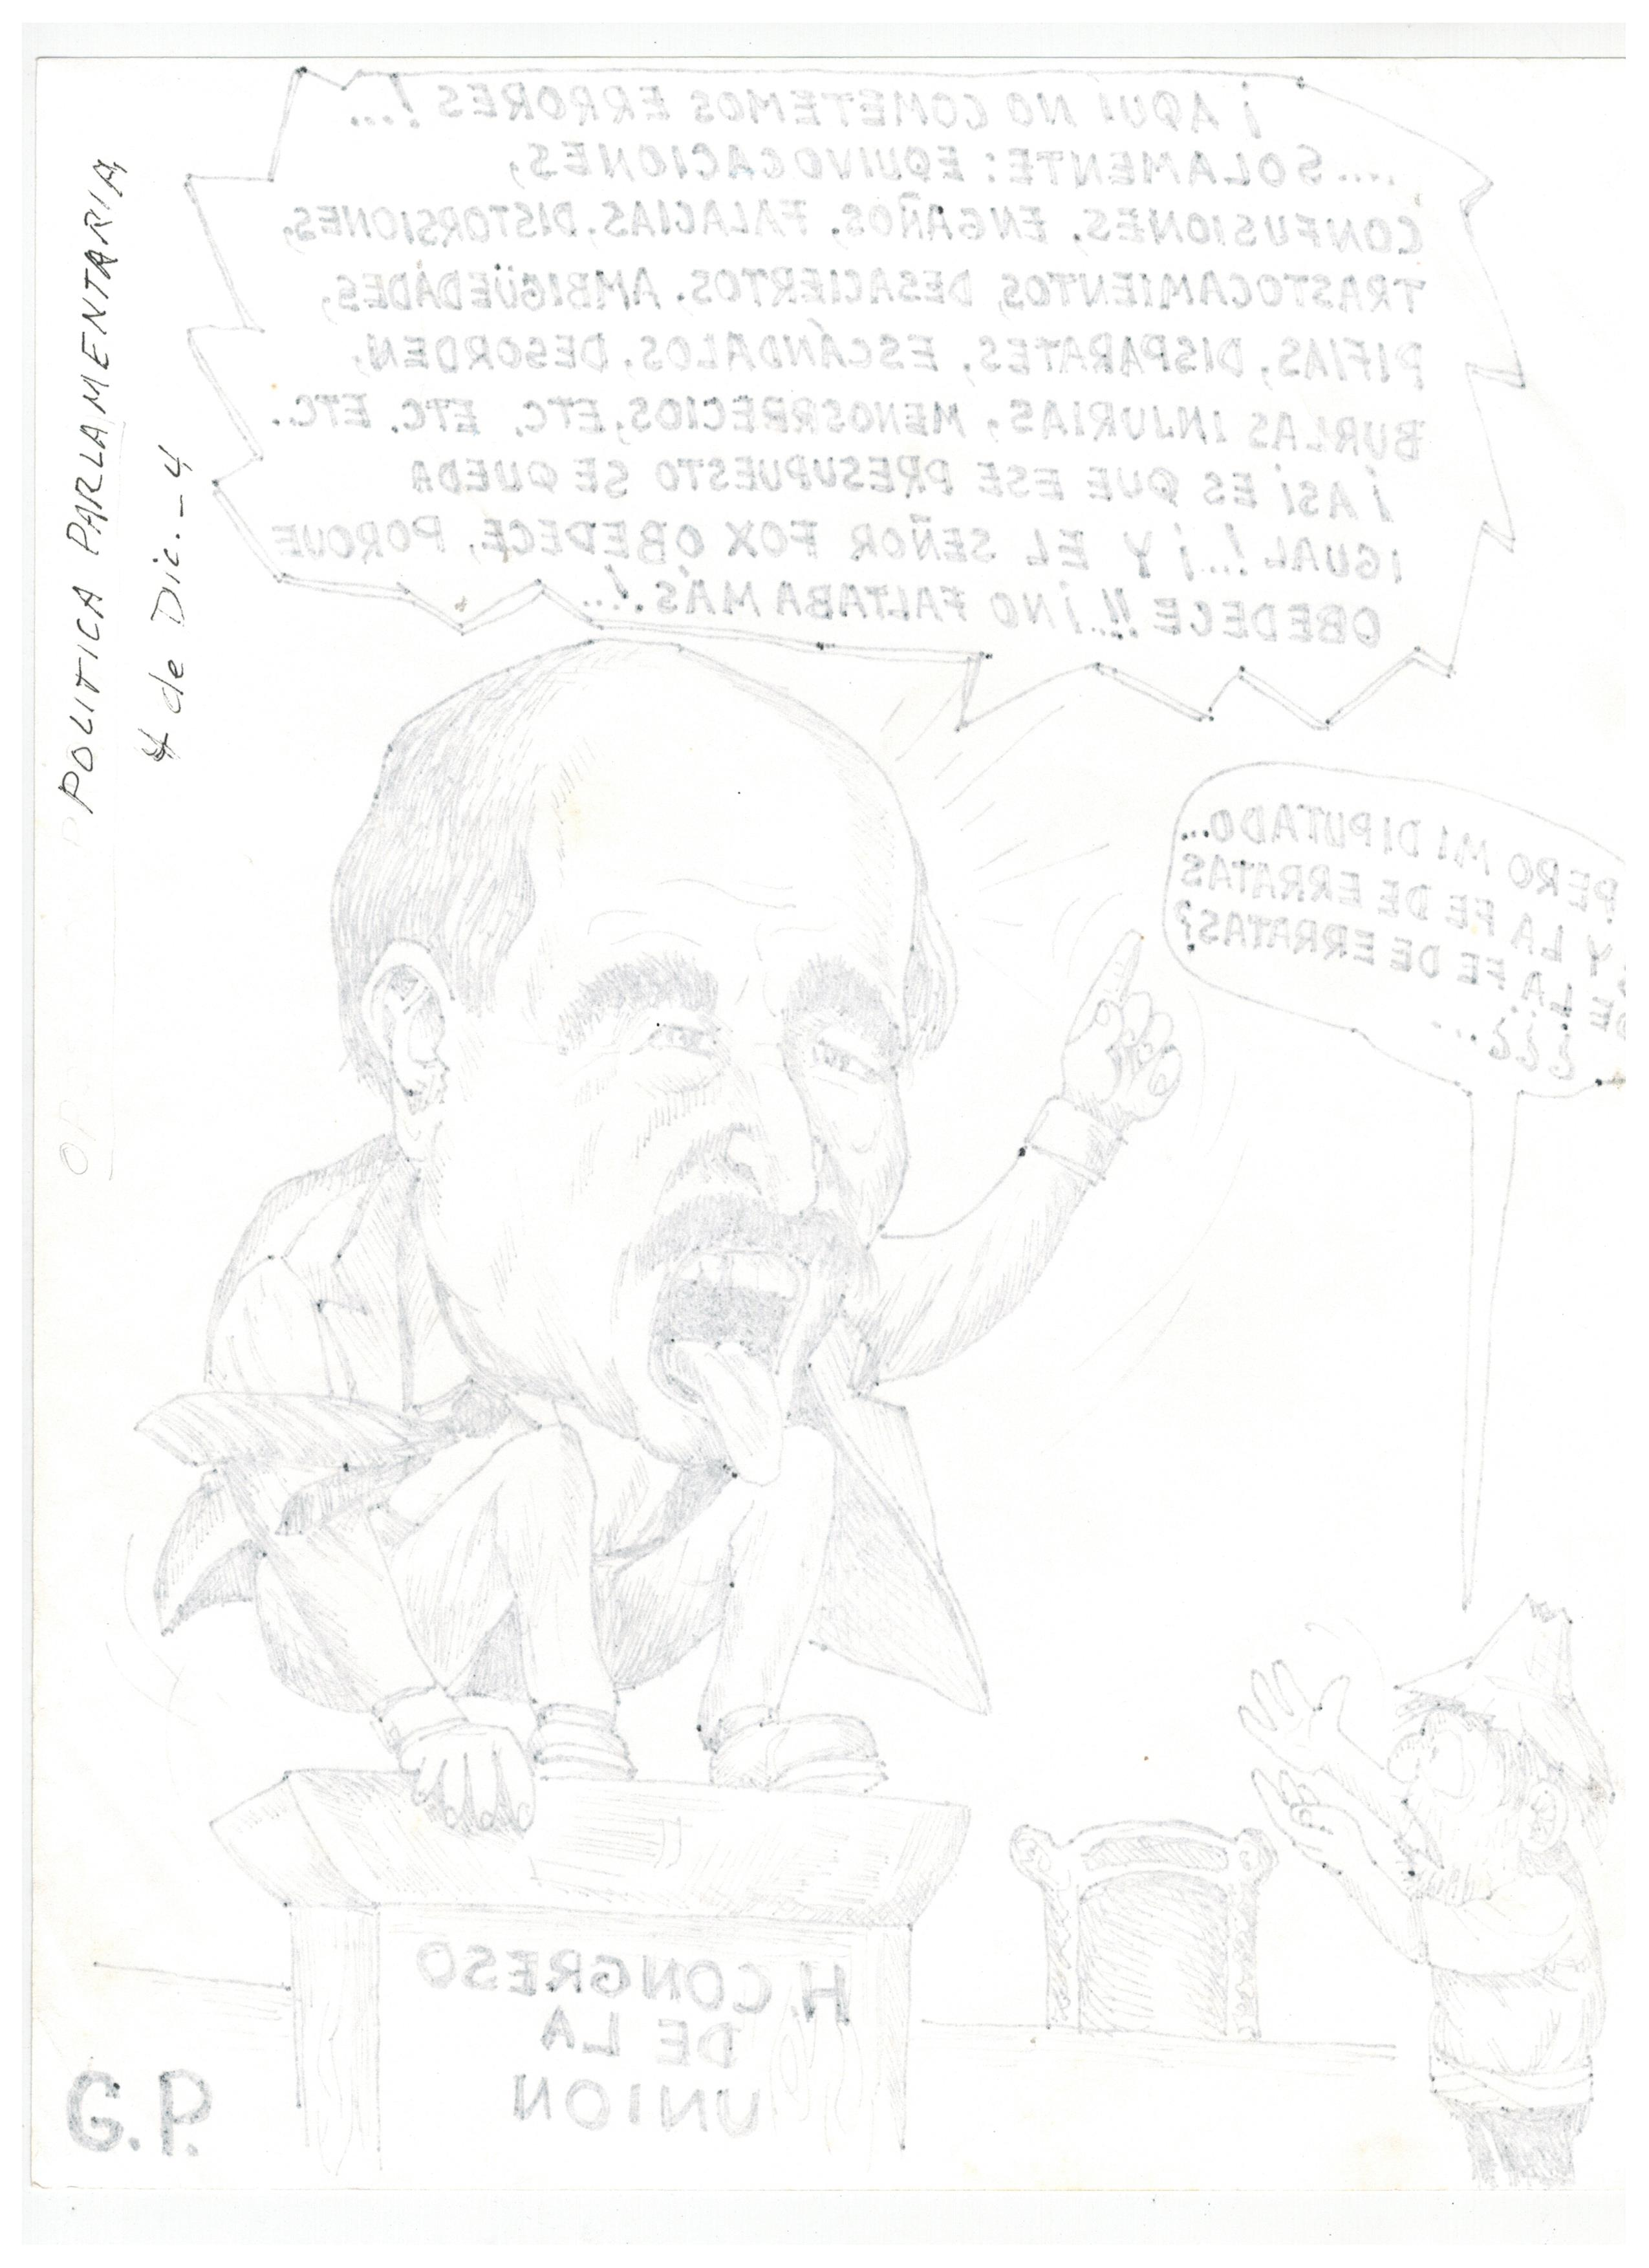 POLITICA PARLAMENTARIA
4 de Dic. - 4
¡AQUI NO COMETEMOS ERRORES!...
...SOLAMENTE: EQUIVOCACIONES,
CONFUSIONES, ENGAÑOS, FALACIAS, DISTORSIONES,
TRASTOCAMIENTOS, DESACIERTOS, AMBIGÜEDADES,
PIFIAS, DISPARATES, ESCÁNDALOS, DESORDEN,
BURLAS INJURIAS, MENOSPRECIOS, ETC, ETC. ETC.
¡ASI ES QUE ESE PRESUPUESTO SE QUEDA
IGUAL!...¡Y EL SEÑOR FOX OBEDECE, PORQUE
OBEDECE!!...¡NO FALTABA MÁS!...
PERO MI DIPUTADO...
Y LA FE DE ERRATAS
DE LA FE DE ERRATAS?
...¿¿¿
H. CONGRESO
DE LA
UNION
G.P.